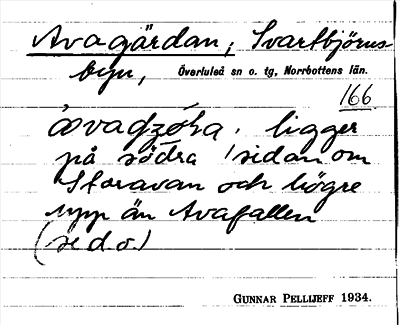 Avagärdan, Svartbjörns-
byn, Överluleå sn o. tg, Norrbottens län.
166
ligger
på södra sidan om
Storavan och högre
upp än Avafallen
(se d. o.)
GUNNAR PELLIJEFF 1934.